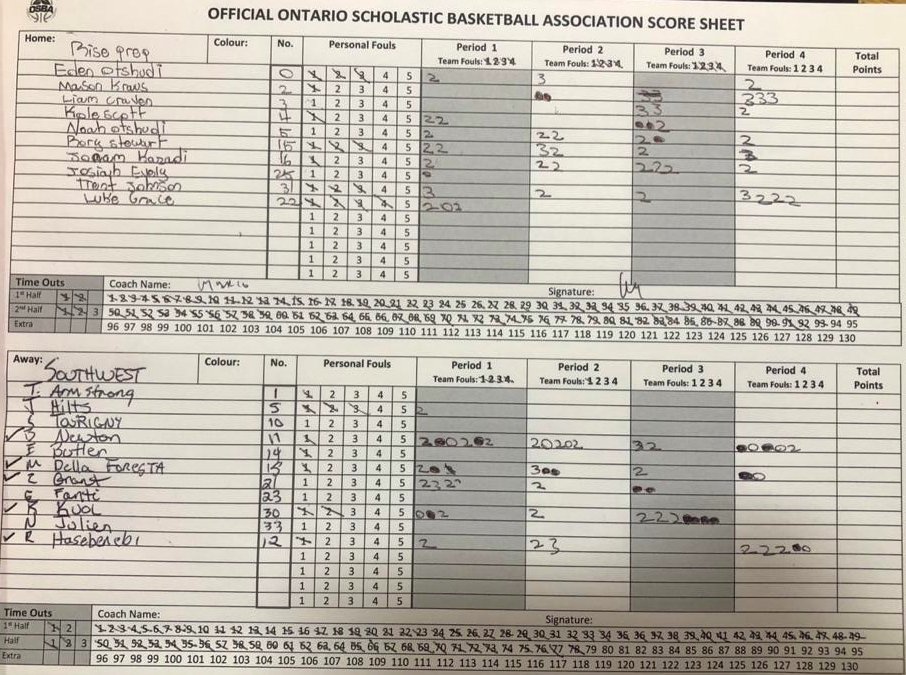 OSBA
OFFICIAL ONTARIO SCHOLASTIC BASKETBALL ASSOCIATION SCORE SHEET
Home: Rise prep Colour: No. Personal Fouls Period 1 Team Fouls: 1 2 3 4 Period 2 Team Fouls: 1 2 3 4 Period 3 Team Fouls: 1 2 3 4 Period 4 Team Fouls: 1 2 3 4 Total Points
Eden Otshudi 0 1 2 3 4 5 2 3 2
Mason Kraus 2 1 2 3 4 5 333
Liam Craven 3 1 2 3 4 5 33 2
Kyle Scott 4 1 2 3 4 5 22 2
Noah Otshudi 5 1 2 3 4 5 2 22 2 2
Rory Stewart 15 1 2 3 4 5 22 32 2
16 1 2 3 4 5 2 22 222 2
Josiah 25 1 2 3 4 5
Trent Johnson 31 1 2 3 4 5 3 2 2 3222
Luke Grace 22 1 2 3 4 5 202
1 2 3 4 5
1 2 3 4 5
1 2 3 4 5
1 2 3 4 5
1 2 3 4 5
Time Outs Coach Name: Signature:
1st Half 1 2 1 2 3 4 5 6 7 8 9 10 11 12 13 14 15 16 17 18 19 20 21 22 23 24 25 26 27 28 29 30 31 32 33 34 35 36 37 38 39 40 41 42 43 44 45 46 47 48 49
2nd Half 1 2 3 50 51 52 53 54 55 56 57 58 59 60 61 62 63 64 65 66 67 68 69 70 71 72 73 74 75 76 77 78 79 80 81 82 83 84 85 86 87 88 89 90 91 92 93 94 95
Extra 96 97 98 99 100 101 102 103 104 105 106 107 108 109 110 111 112 113 114 115 116 117 118 119 120 121 122 123 124 125 126 127 128 129 130
Away: SOUTHWEST Colour: No. Personal Fouls Period 1 Team Fouls: 1 2 3 4 Period 2 Team Fouls: 1 2 3 4 Period 3 Team Fouls: 1 2 3 4 Period 4 Team Fouls: 1 2 3 4 Total Points
T. Armstrong 1 1 2 3 4 5
J Hilts 5 1 2 3 4 5 2
S TOURIGNY 10 1 2 3 4 5
B Newton 11 1 2 3 4 5 20202 32 02
E Butler 14 1 2 3 4 5
M Della FORESTA 15 1 2 3 4 5 2 3 2
Z Grant 21 1 2 3 4 5 232 2
G Fanti 23 1 2 3 4 5
K KUOL 30 1 2 3 4 5 2 222
N Julien 33 1 2 3 4 5
R 12 1 2 3 4 5 2 23 222
1 2 3 4 5
1 2 3 4 5
1 2 3 4 5
1 2 3 4 5
Time Outs Coach Name: Signature:
1st Half 1 2 1 2 3 4 5 6 7 8 9 10 11 12 13 14 15 16 17 18 19 20 21 22 23 24 25 26 27 28 29 30 31 32 33 34 35 36 37 38 39 40 41 42 43 44 45 46 47 48 49
Half 1 2 3 50 51 52 53 54 55 56 57 58 59 60 61 62 63 64 65 66 67 68 69 70 71 72 73 74 75 76 77 78 79 80 81 82 83 84 85 86 87 88 89 90 91 92 93 94 95
Extra 96 97 98 99 100 101 102 103 104 105 106 107 108 109 110 111 112 113 114 115 116 117 118 119 120 121 122 123 124 125 126 127 128 129 130